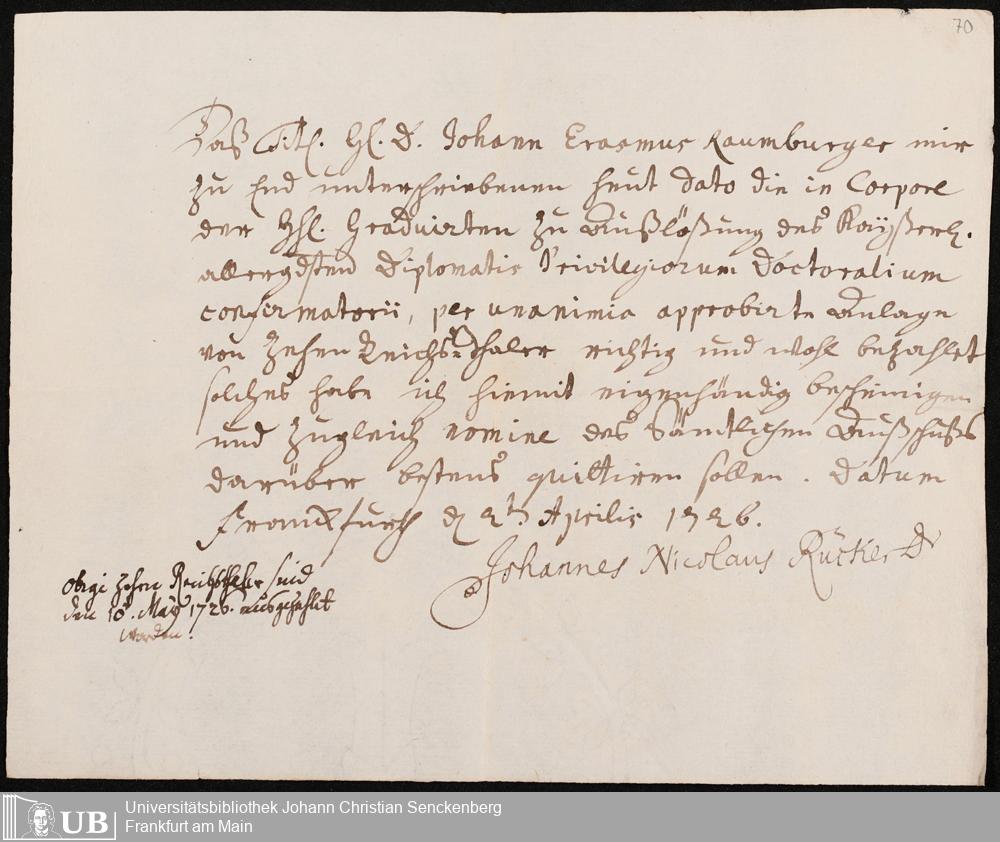 70
Daß Tit. Hl. D. Johann Erasmus Raumburger mir
zu End unterschriebenen heut dato die in Corpore
der Hhl. Graduirten zu Außlößung des Kayßerl.
allergdsten Diplomatis Privilegiorum Doctoralium
confirmatorii, per unanimia approbirte Anlage
von Zehen Reichs-Thaler richtig und wohl bezahlet
solches habe ich hiemit eigenhändig bescheinigen
und zugleich nomine des Sämtlichen Außschußes
darüber bestens quittiren sollen. Datum
Franckfurth d 2t Aprilis 1726.
Johannes Nicolaus Rücker Dr
obige zehen Reichsthaler sind
den 10. May 1726. ausgezahlt
worden.
UB
Universitätsbibliothek Johann Christian Senckenberg
Frankfurt am Main